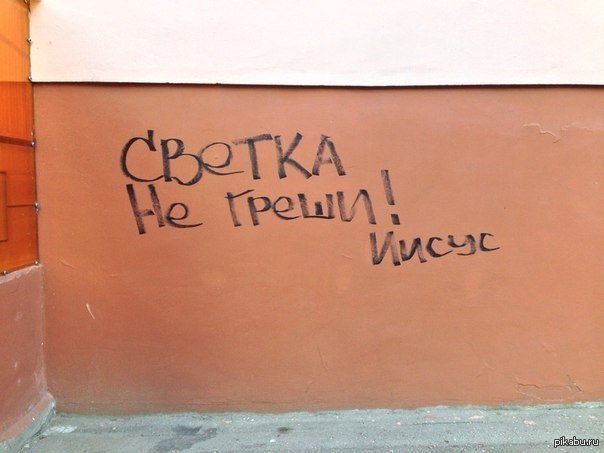 СВеТКА
Не Греши!
Иисус
pikabu.ru